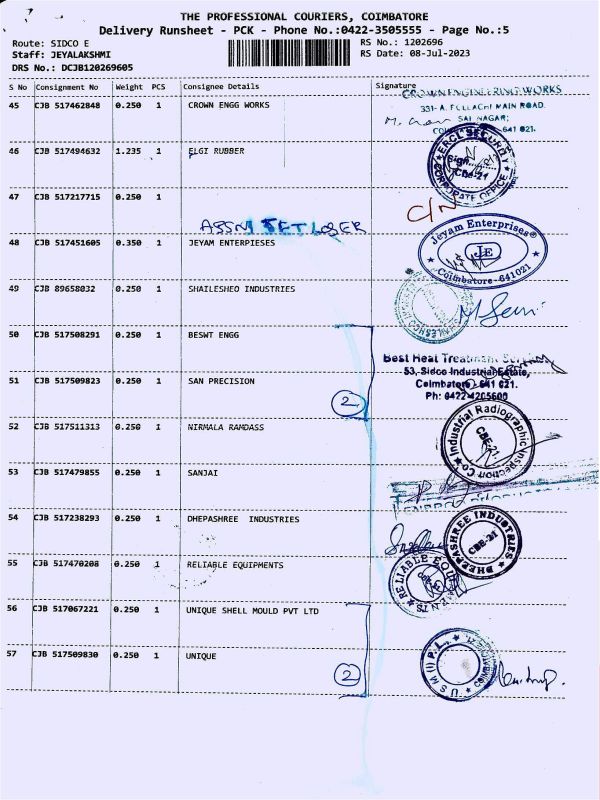 THE PROFESSIONAL COURIERS, COIMBATORE
Delivery Runsheet - PCK - Phone No.:0422-3505555 - Page No.:5
Route: SIDCO E
Staff: JEYALAKSHMI
DRS No.: DCJB120269605
RS No.: 1202696
RS Date: 08-Jul-2023
S No Consignment No Weight PCS Consignee Details Signature
45 CJB 517462848 0.250 1 CROWN ENGG WORKS
CROWN ENGINEERING WORKS
331-A, POLLACHI MAIN ROAD.
SAI NAGAR;
641 021.
46 CJB 517494632 1.235 1 ELGI RUBBER
ERCL SECURITY
Sign
CBE-21
CORPORATE OFFICE
47 CJB 517217715 0.250 1
C/N
48 CJB 517451605 0.350 1 JEYAM ENTERPIESES
Jeyam Enterprises®
JE
Coimbatore-641021
49 CJB 89658032 0.250 1 SHAILESHEO INDUSTRIES
50 CJB 517508291 0.250 1 BESWT ENGG
Best Heat Treatment
53, Sidco Industrial Estate,
Coimbatore - 641 021.
Ph: 0422-4205600
51 CJB 517509823 0.250 1 SAN PRECISION
2
52 CJB 517511313 0.250 1 NIRMALA RAMDASS
Industrial Radiographic Inspection Co
CBE-21
53 CJB 517479855 1 SANJAI
54 CJB 517238293 0.250 1 DHEPASHREE INDUSTRIES
DHEEPASHREE INDUSTRIES
CBE-21
55 CJB 517470208 0.250 1 RELIABLE EQUIPMENTS
56 CJB 517067221 0.250 1 UNIQUE SHELL MOULD PVT LTD
57 CJB 517509830 0.250 1 UNIQUE
2
U S M (I) P. L.